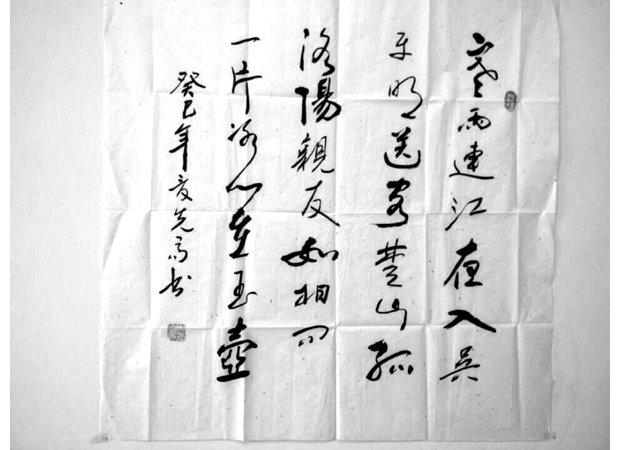 寒雨連江夜入吴
平明送客楚山孤
洛陽親友如相问
一片冰心在玉壺
癸巳年 先 书